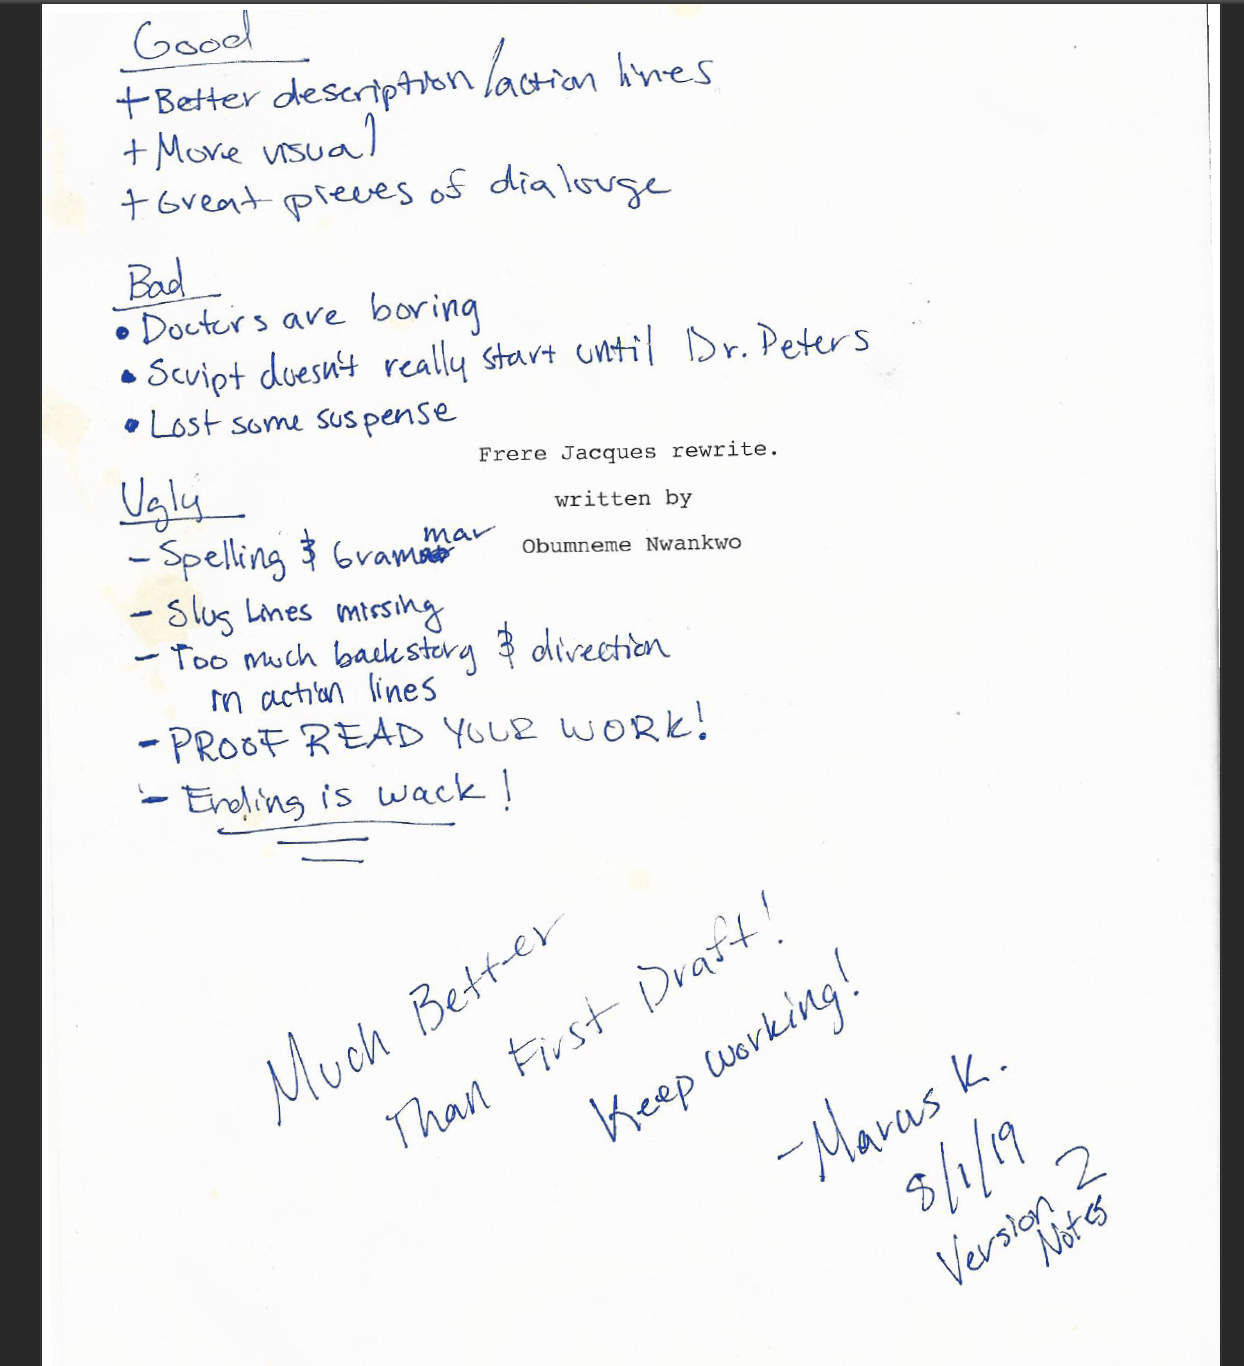 Good
+ Better description/action lines
+ More visual
+ Great pieces of dialouge
Bad
• Doctors are boring
• Script doesn't really start until Dr. Peters
• Lost some suspense
Frere Jacques rewrite.
written by
Obumneme Nwankwo
Ugly
- Spelling & Grammar
- Slug Lines missing
- Too much backstory & direction
in action lines
- PROOF READ YOUR WORK!
- Ending is wack!
Much Better
Than First Draft!
Keep working!
- Marcus K.
8/1/19
Version 2
Notes